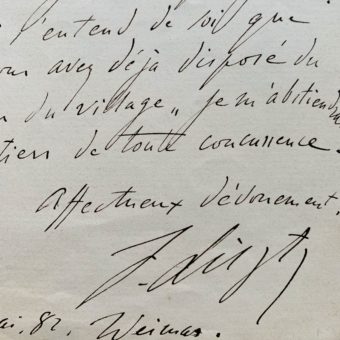 l'entend de soi que
avez déjà disposé du
du village „ je m'abstiendrai
de toute concurrence.
Affectueux dévouement,
F. Liszt
mai, 82. Weimar.